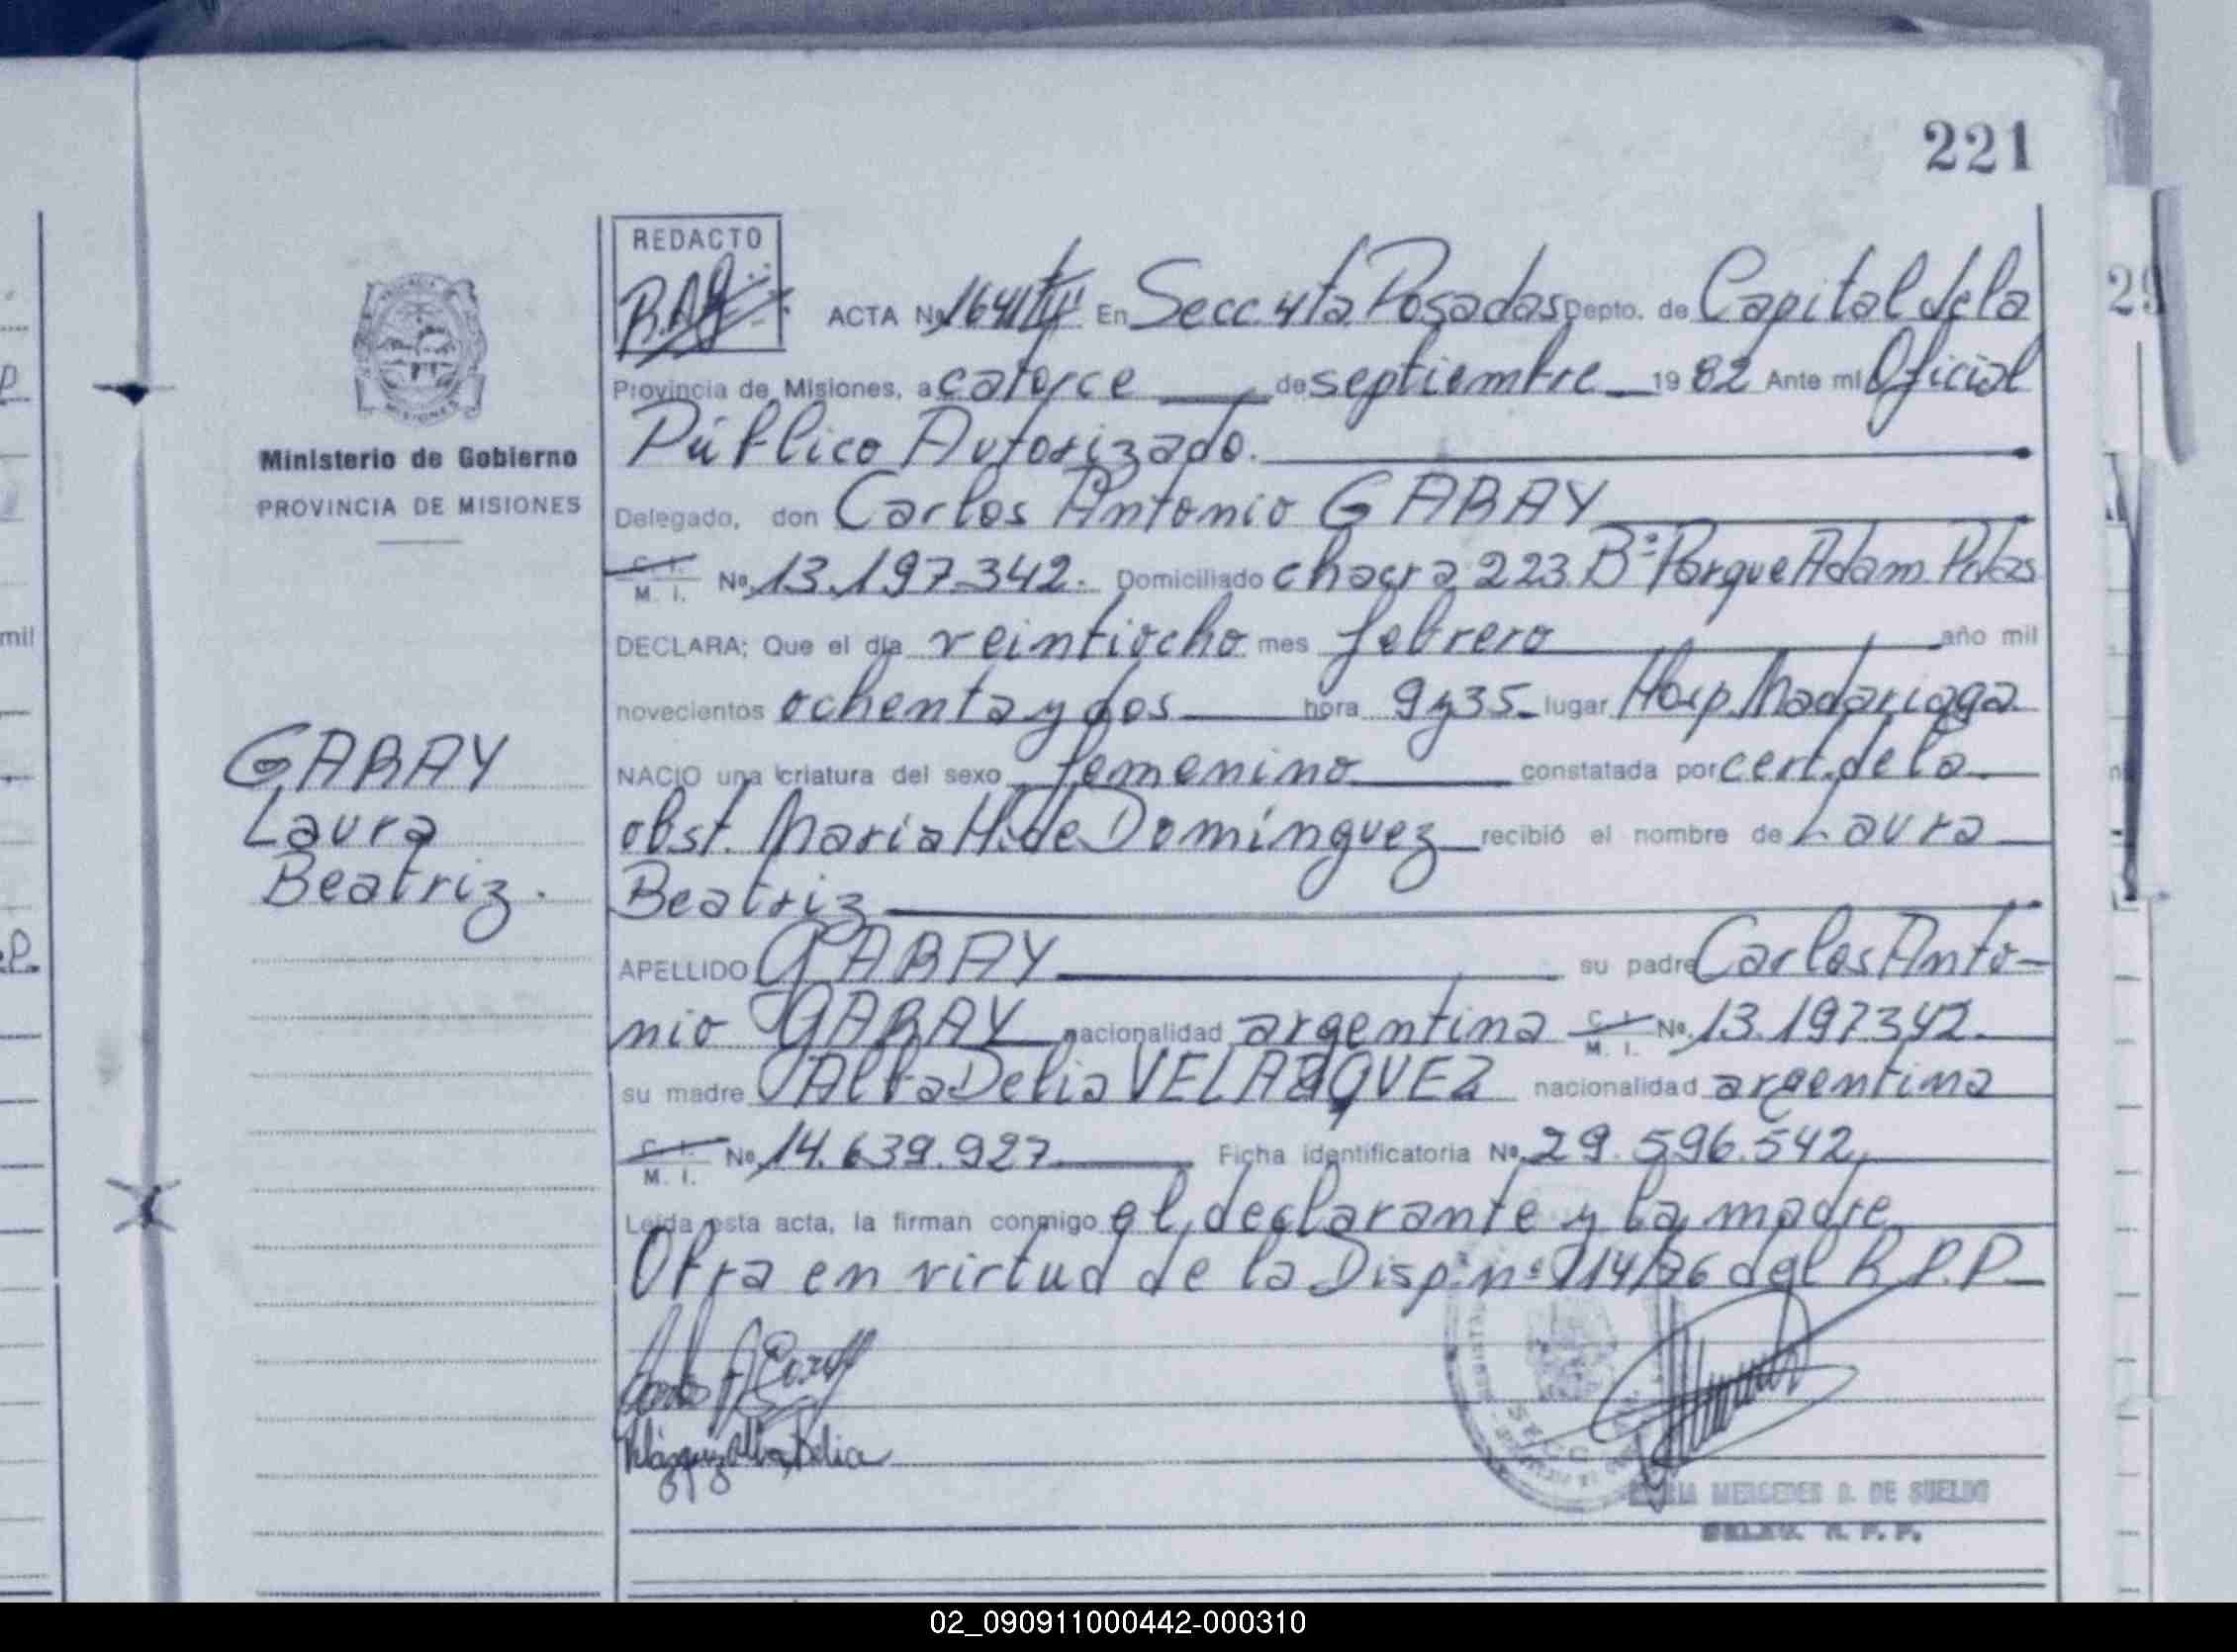 221
REDACTO
ACTA Nº 1641 En Secc. 4ta Posadas Depto. de Capital de la
Provincia de Misiones, a catorce de septiembre 1982 Ante mi Oficial
Público Autorizado.
Ministerio de Gobierno
PROVINCIA DE MISIONES
Delegado, don Carlos Antonio GARAY
C. I.
M. I. Nº 13.197.342. Domiciliado chacra 223 Bº Parque Adam Pdas
DECLARA; Que el día veintiocho mes febrero año mil
novecientos ochenta y dos hora 9 y 35 lugar Hosp. Madariaga
GARAY
Laura
Beatriz.
NACIO una criatura del sexo femenino constatada por cert. de la
obst. Maria H. de Domínguez recibió el nombre de Laura
Beatriz
APELLIDO GARAY su padre Carlos Anto-
nio GARAY nacionalidad argentina C. I. M. I. Nº 13.197342.
su madre Alba Delia VELAZQUEZ nacionalidad argentina
C. I.
M. I. Nº 14.639.927 Ficha identificatoria Nº 29.596.542,
Leída esta acta, la firman conmigo el declarante y la madre
Obra en virtud de la Disp. nº 114/76 del R.P.P.
Velázquez Alba Delia
MERCEDES D. DE SUELDO
R. P. P.
02_090911000442-000310